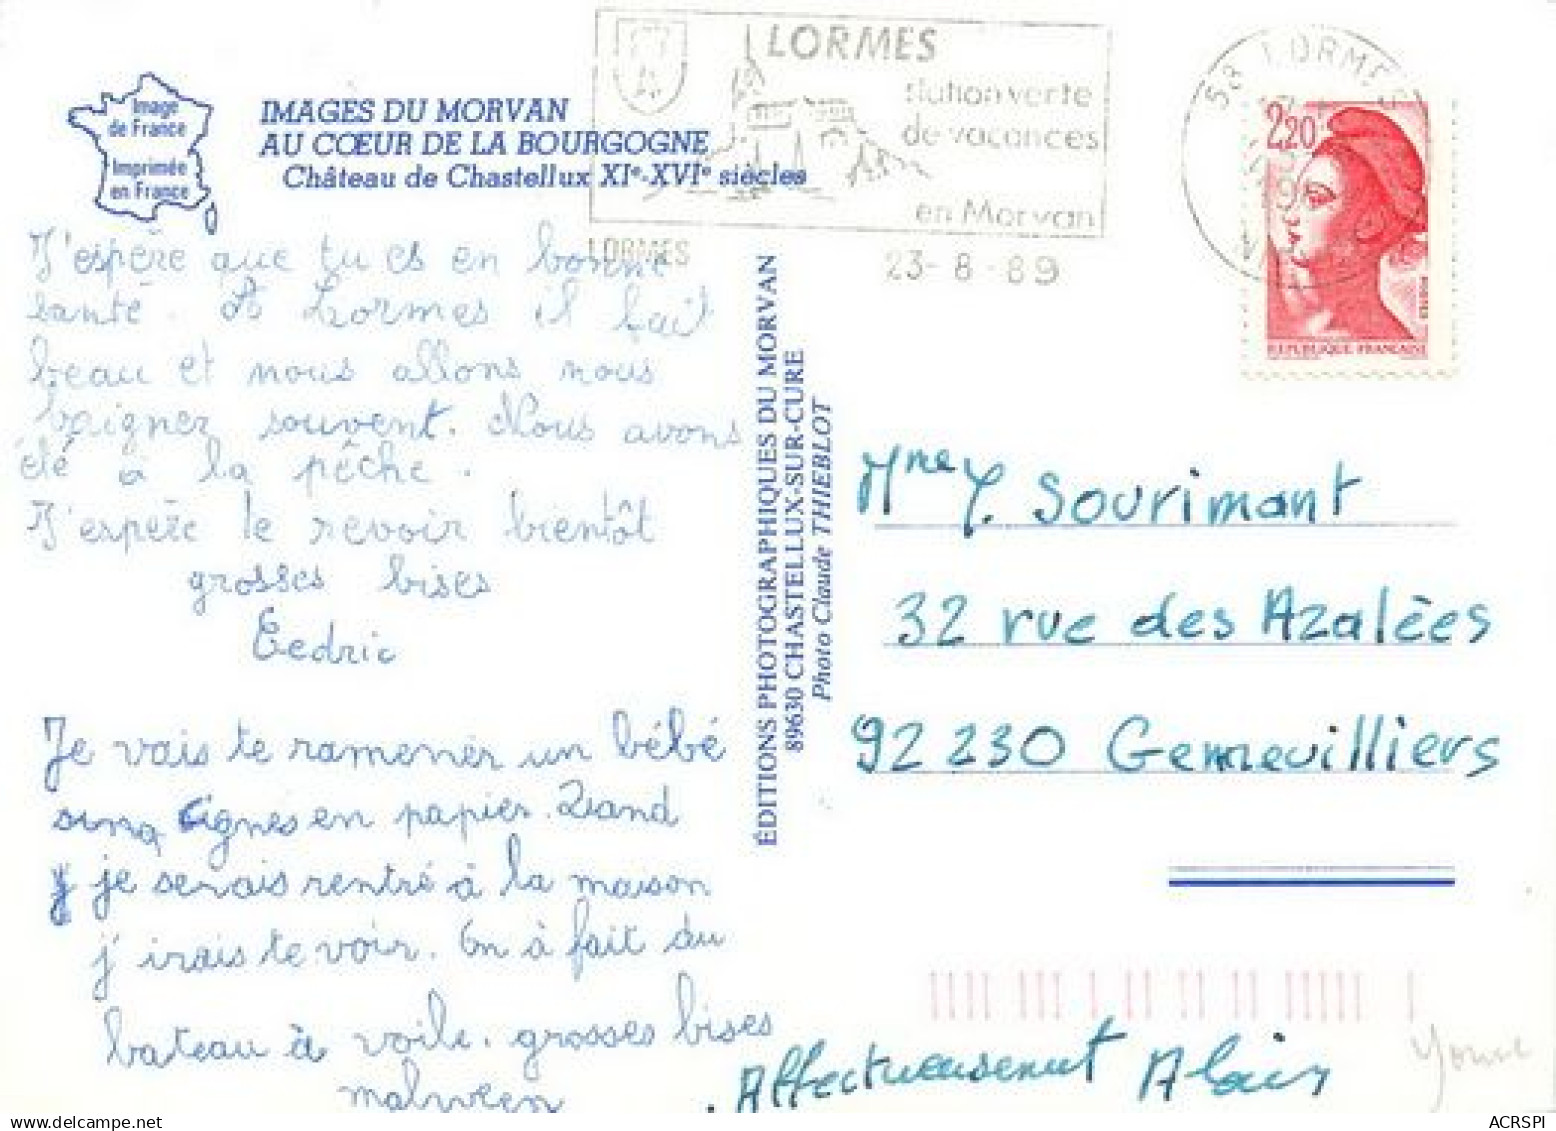 Image
de France
Imprimée
en France
IMAGES DU MORVAN
AU CŒUR DE LA BOURGOGNE
Château de Chastellux XIe-XVIe siècles
LORMES
station verte
de vacances
en Morvan
LORMES
23-8-89
58 LORMES
2,20
REPUBLIQUE FRANÇAISE
J'espère que tu es en bonne
santé. A Lormes il fait
beau et nous allons nous
baigner souvent. Nous avons
été à la pêche.
J'espère te revoir bientôt
grosses bises
Cedric
Je vais te ramener un bébé
cignes en papier. Quand
je serais rentré à la maison
j'irais te voir. On à fait du
bateau à voile. grosses bises
malween
ÉDITIONS PHOTOGRAPHIQUES DU MORVAN
89630 CHASTELLUX-SUR-CURE
Photo Claude THIEBLOT
Mme Y. Sourimant
32 rue des Azalées
92 230 Gennevilliers
Affectueusement Alain
Yonne
ACRSPI